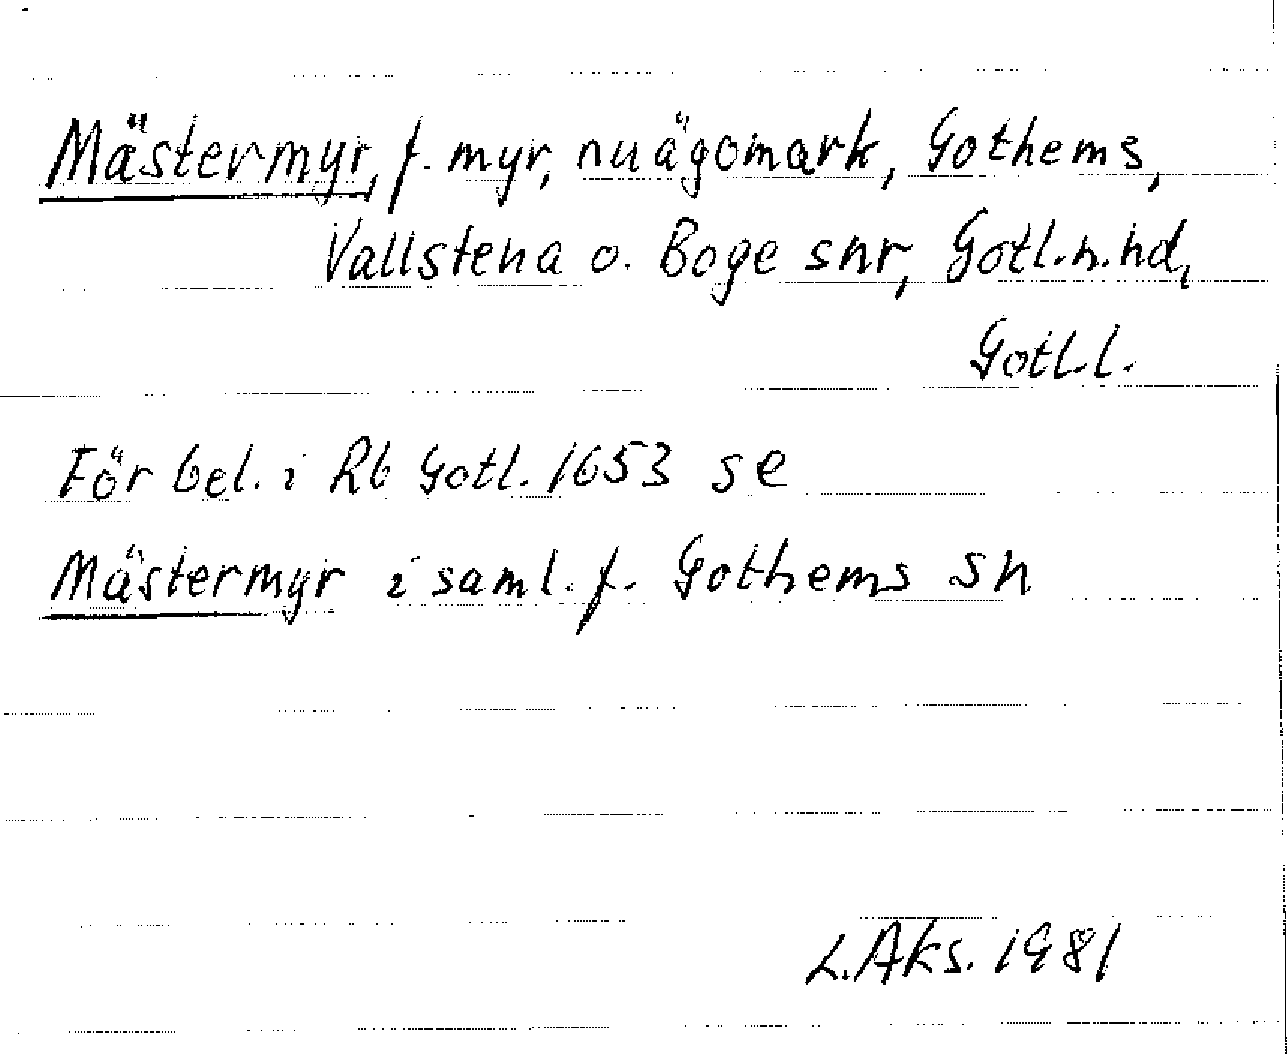 Mästermyr, f. myr, nu ägomark, Gothems,
Vallstena o. Boge snr, Gotl.n.hd,
Gotl.l.
För bel. i Rb Gotl. 1653 se
Mästermyr i saml. f. Gothems sn
L.Aks. 1981